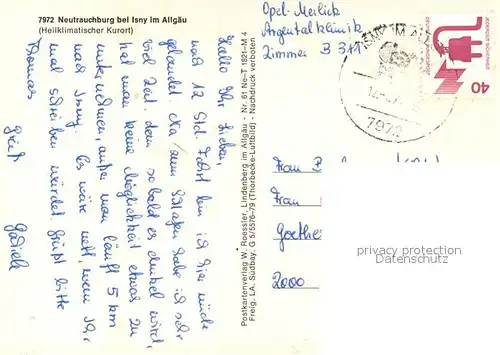 7972 Neutrauchburg bei Isny im Allgäu
(Heilklimatischer Kurort)
Hallo Ihr Lieben,
nach 12 Std. Fahrt bin ich hier müde
gelandet. Zum Schlafen habe ich sehr
viel Zeit, denn sobald es dunkel wird,
hat man keine Möglichkeit etwas zu
unternehmen, außer man läuft 5 km
nach Isny. Es wäre nett, wenn Ihr
mal schreiben würdet. Grüßt bitte
Thomas
Gruß
Postkartenverlag W. Roessler, Lindenberg im Allgäu - Nr. 61 Ne-T 1821-M 4
Freig. LA. Südbay. G 5/5576-79 (Thorbecke-Luftbild) - Nachdruck verboten
Opel-Meilick
Argentalklinik
Zimmer B 317
ISNY IM
7972
40
Frau B
Frau
Goethes
2000
privacy protection
Datenschutz